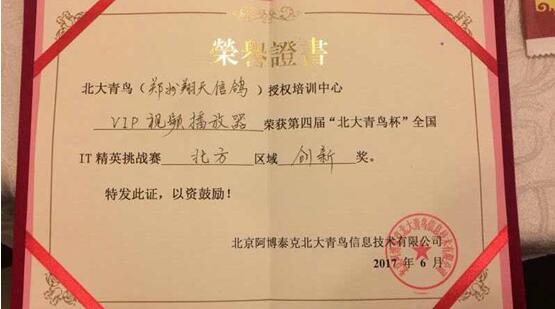 榮譽證書
北大青鸟（郑州翔天信鸽）授权培训中心
VIP视频播放器荣获第四届“北大青鸟杯”全国
IT精英挑战赛 北方 区域 创新 奖。
特发此证，以资鼓励！
北京阿博泰克北大青鸟信息技术有限公司
2017 年 6 月